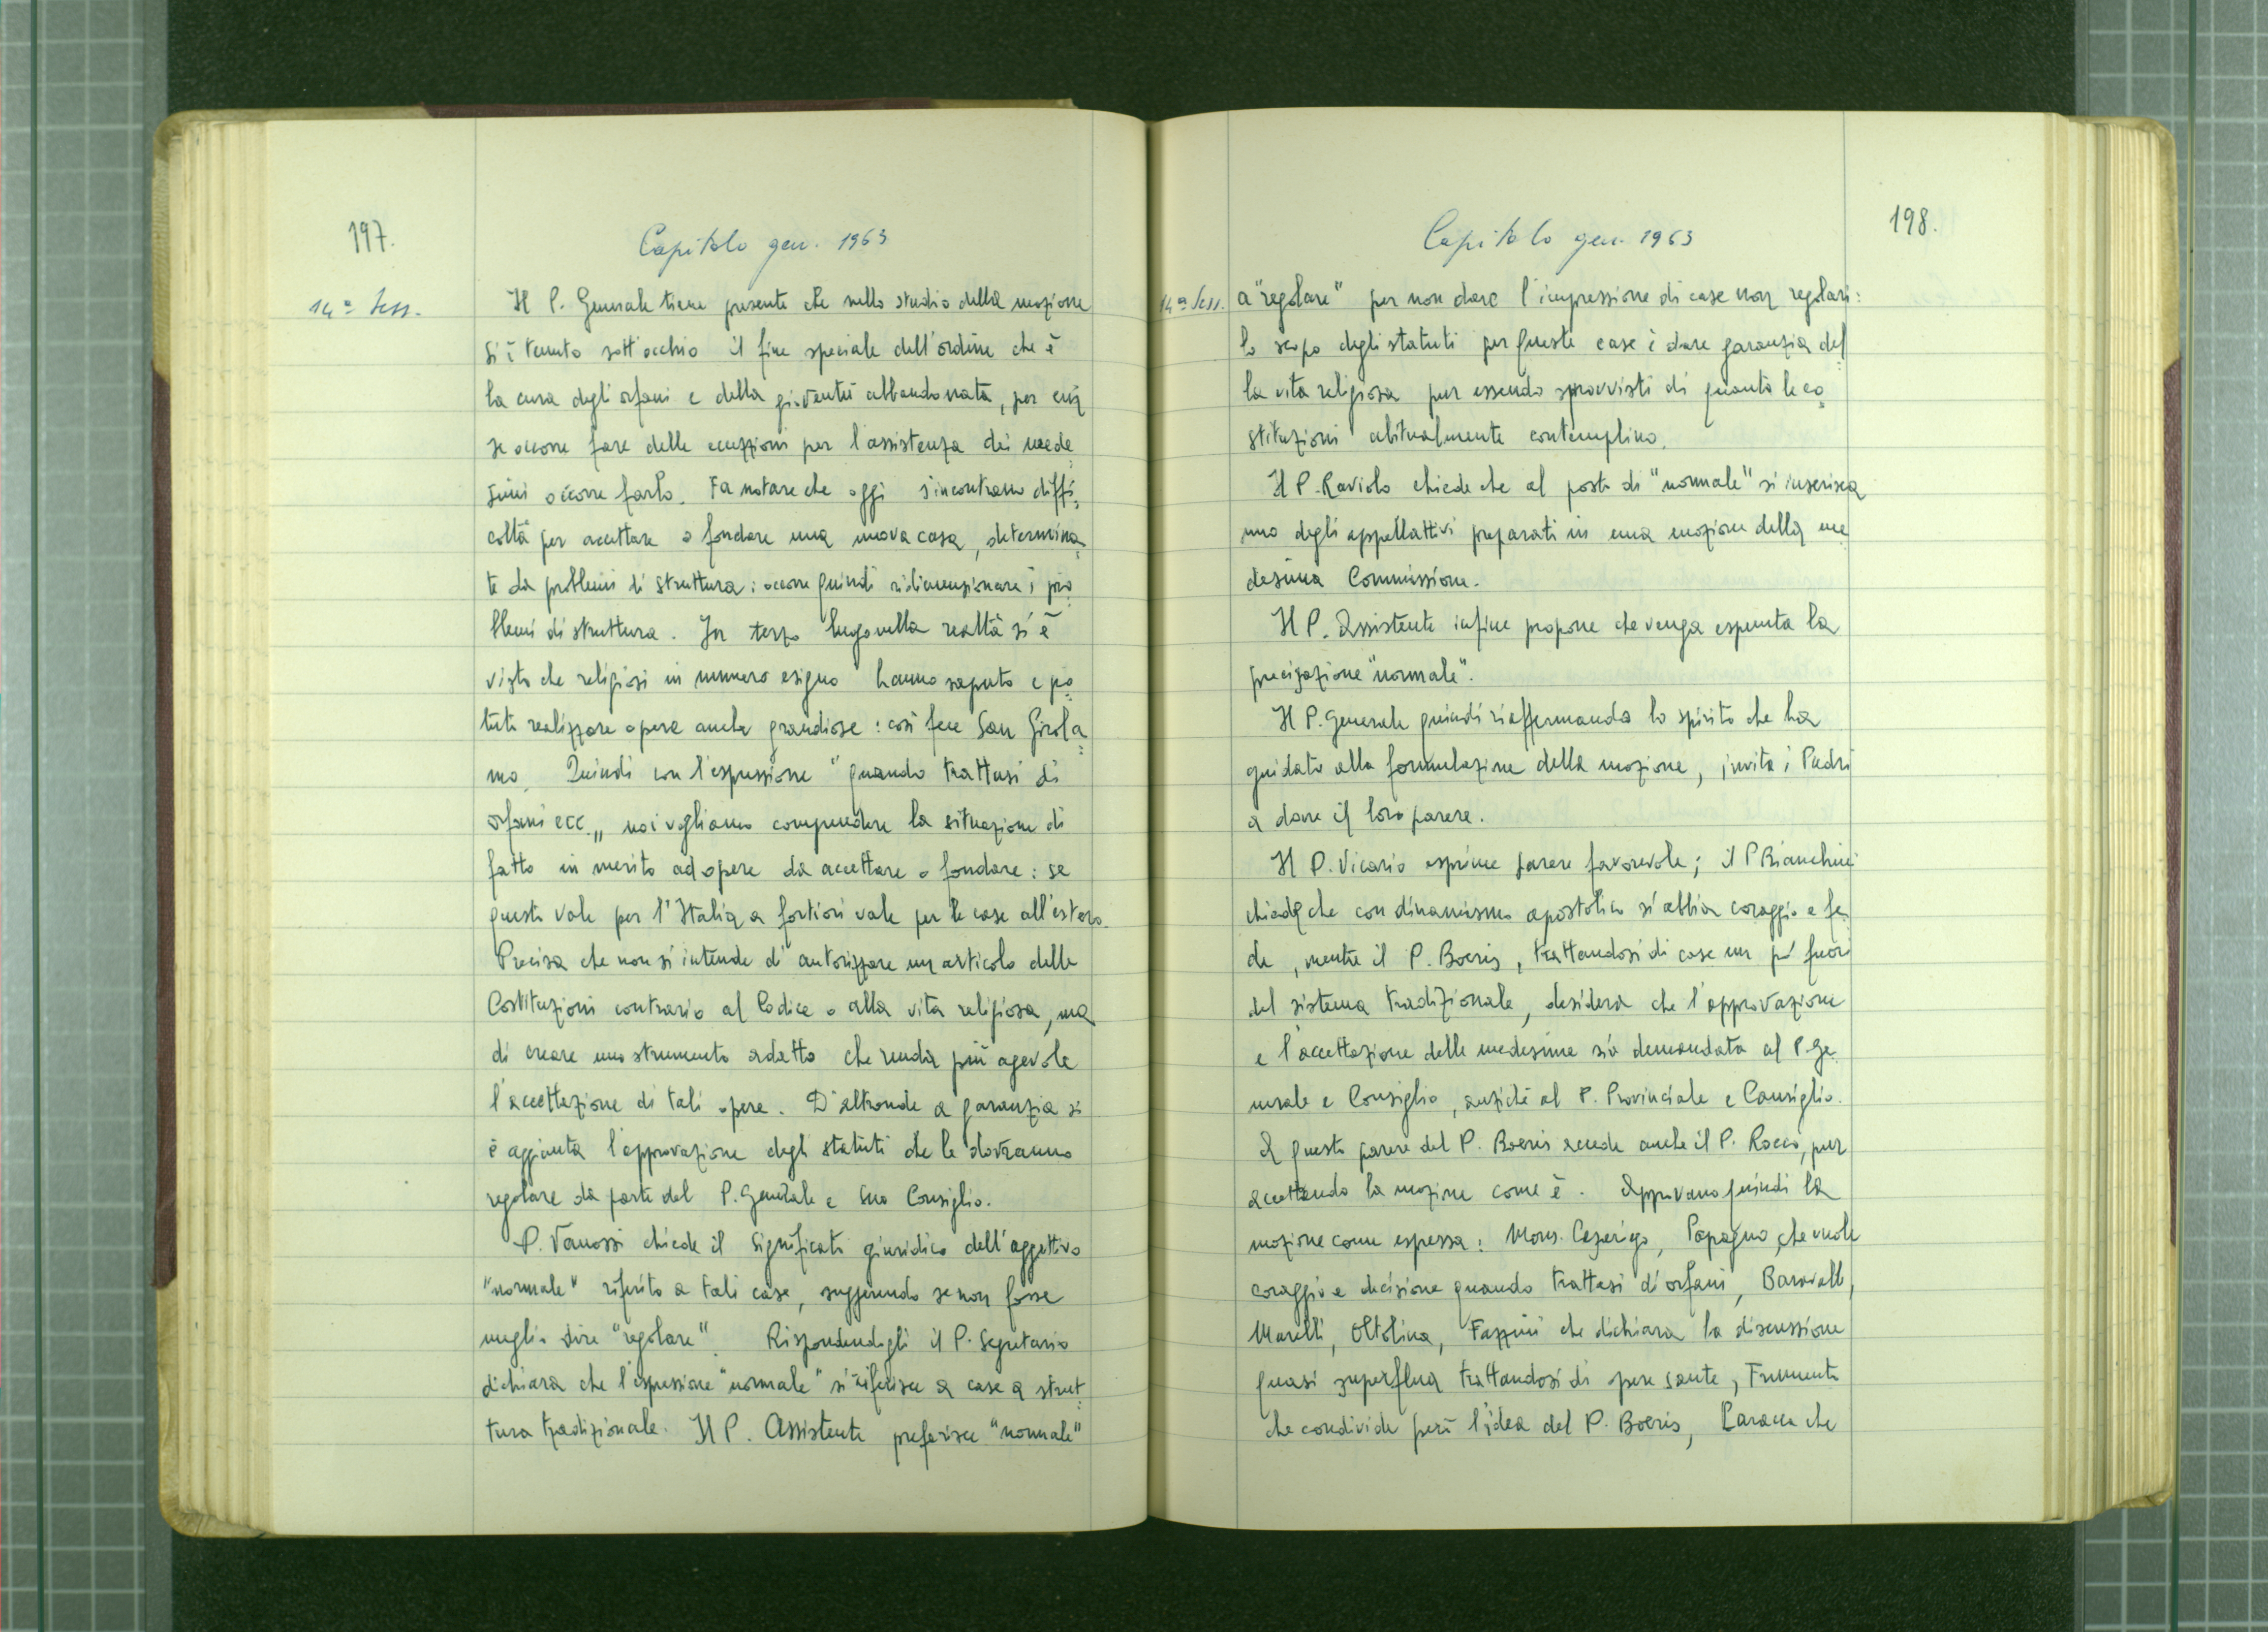 197.
Capitolo gen. 1963
14ª Sess.
Il P. Generale tiene presente che nello studio della mozione
si è tenuto sott'occhio il fine speciale dell'ordine che è
la cura degli orfani e della gioventù abbandonata, per cui
se occorre fare delle eccezzioni per l'assistenza dei mede
simi occorre farlo. Fa notare che oggi s'incontrano diffi
coltà per accettare o fondare una nuova casa, determina
te da problemi di struttura: occorre quindi ridimensionare i pro
blemi di struttura. In terzo luogo nella realtà si è
visto che religiosi in numero esiguo hanno saputo e po
tuto realizzare opere anche grandiose: così fece San Girola
mo. Quindi con l'espressione "quando trattasi di
orfani ecc.„ noi vogliamo comprendere la situazione di
fatto in merito ad opere da accettare o fondare: se
questo vale per l'Italia a fortiori vale per le case all'estero.
Precisa che non si intende di autorizzare un articolo delle
Costituzioni contrario al Codice o alla vita religiosa, ma
di creare uno strumento adatto che renda più agevole
l'accettazione di tali opere. D'altronde a garanzia si
è aggiunta l'approvazione degli statuti che le dovranno
regolare da parte del P. Generale e Suo Consiglio.
P. Vanossi chiede il significato giuridico dell'aggettivo
"normale" riferito a tali case, suggerendo se non fosse
meglio dire "regolare". Rispondendogli il P. Segretario
dichiara che l'espressione "normale" si riferisce a case a strut
tura tradizionale. Il P. Assistente preferisce "normale"
198.
Capitolo gen. 1963
14ª Sess.
a "regolare" per non dare l'impressione di case non regolari:
lo scopo degli statuti per queste case è dare garanzia del
la vita religiosa pur essendo sprovvisti di quanto le co
stituzioni abitualmente contemplino.
Il P. Raviolo chiede che al posto di "normale" si inserisca
uno degli appellattivi preparati in una mozione della me
desima Commissione.
Il P. Assistente infine propone che venga espunta la
precisazione "normale".
Il P. Generale quindi riaffermando lo spirito che ha
guidato alla formulazione della mozione, invita i Padri
a dare il loro parere.
Il P. Vicario esprime parere favorevole; il P Bianchini
chiede che con dinamismo apostolico si abbia coraggio e fe
de, mentre il P. Boeris, trattandosi di case un pò fuori
del sistema tradizionale, desidera che l'approvazione
e l'accettazione delle medesime sia demandata al P. Ge
nerale e Consiglio, anzichè al P. Provinciale e Consiglio.
A questo parere del P. Boeris accede anche il P. Rocco, pur
accettando la mozione come è. Approvano quindi la
mozione come espressa: Mons. Cesarigo, Papagno, che vuole
coraggio e decisione quando trattasi di orfani, Baravalle,
Marelli, Oltolina, Fazzini che dichiara la discussione
quasi superflua trattandosi di opere sante, Frumento
che condivide però l'idea del P. Boeris, che